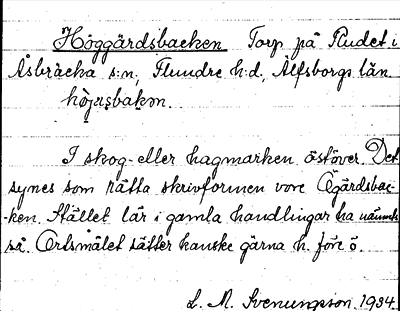 Höggärdsbacken Torp på Rudet i
Åsbräcka s:n, Flundre h:d, Älfsborgs län
I skog- eller hagmarken österöver. Det
synes som rätta skrivformen vore Ögärdsbac-
ken. Stället lär i gamla handlingar ha nämnts
så. Ortsmålet sätter kanske gärna h. före ö.
L. M. Svenungson 1934.